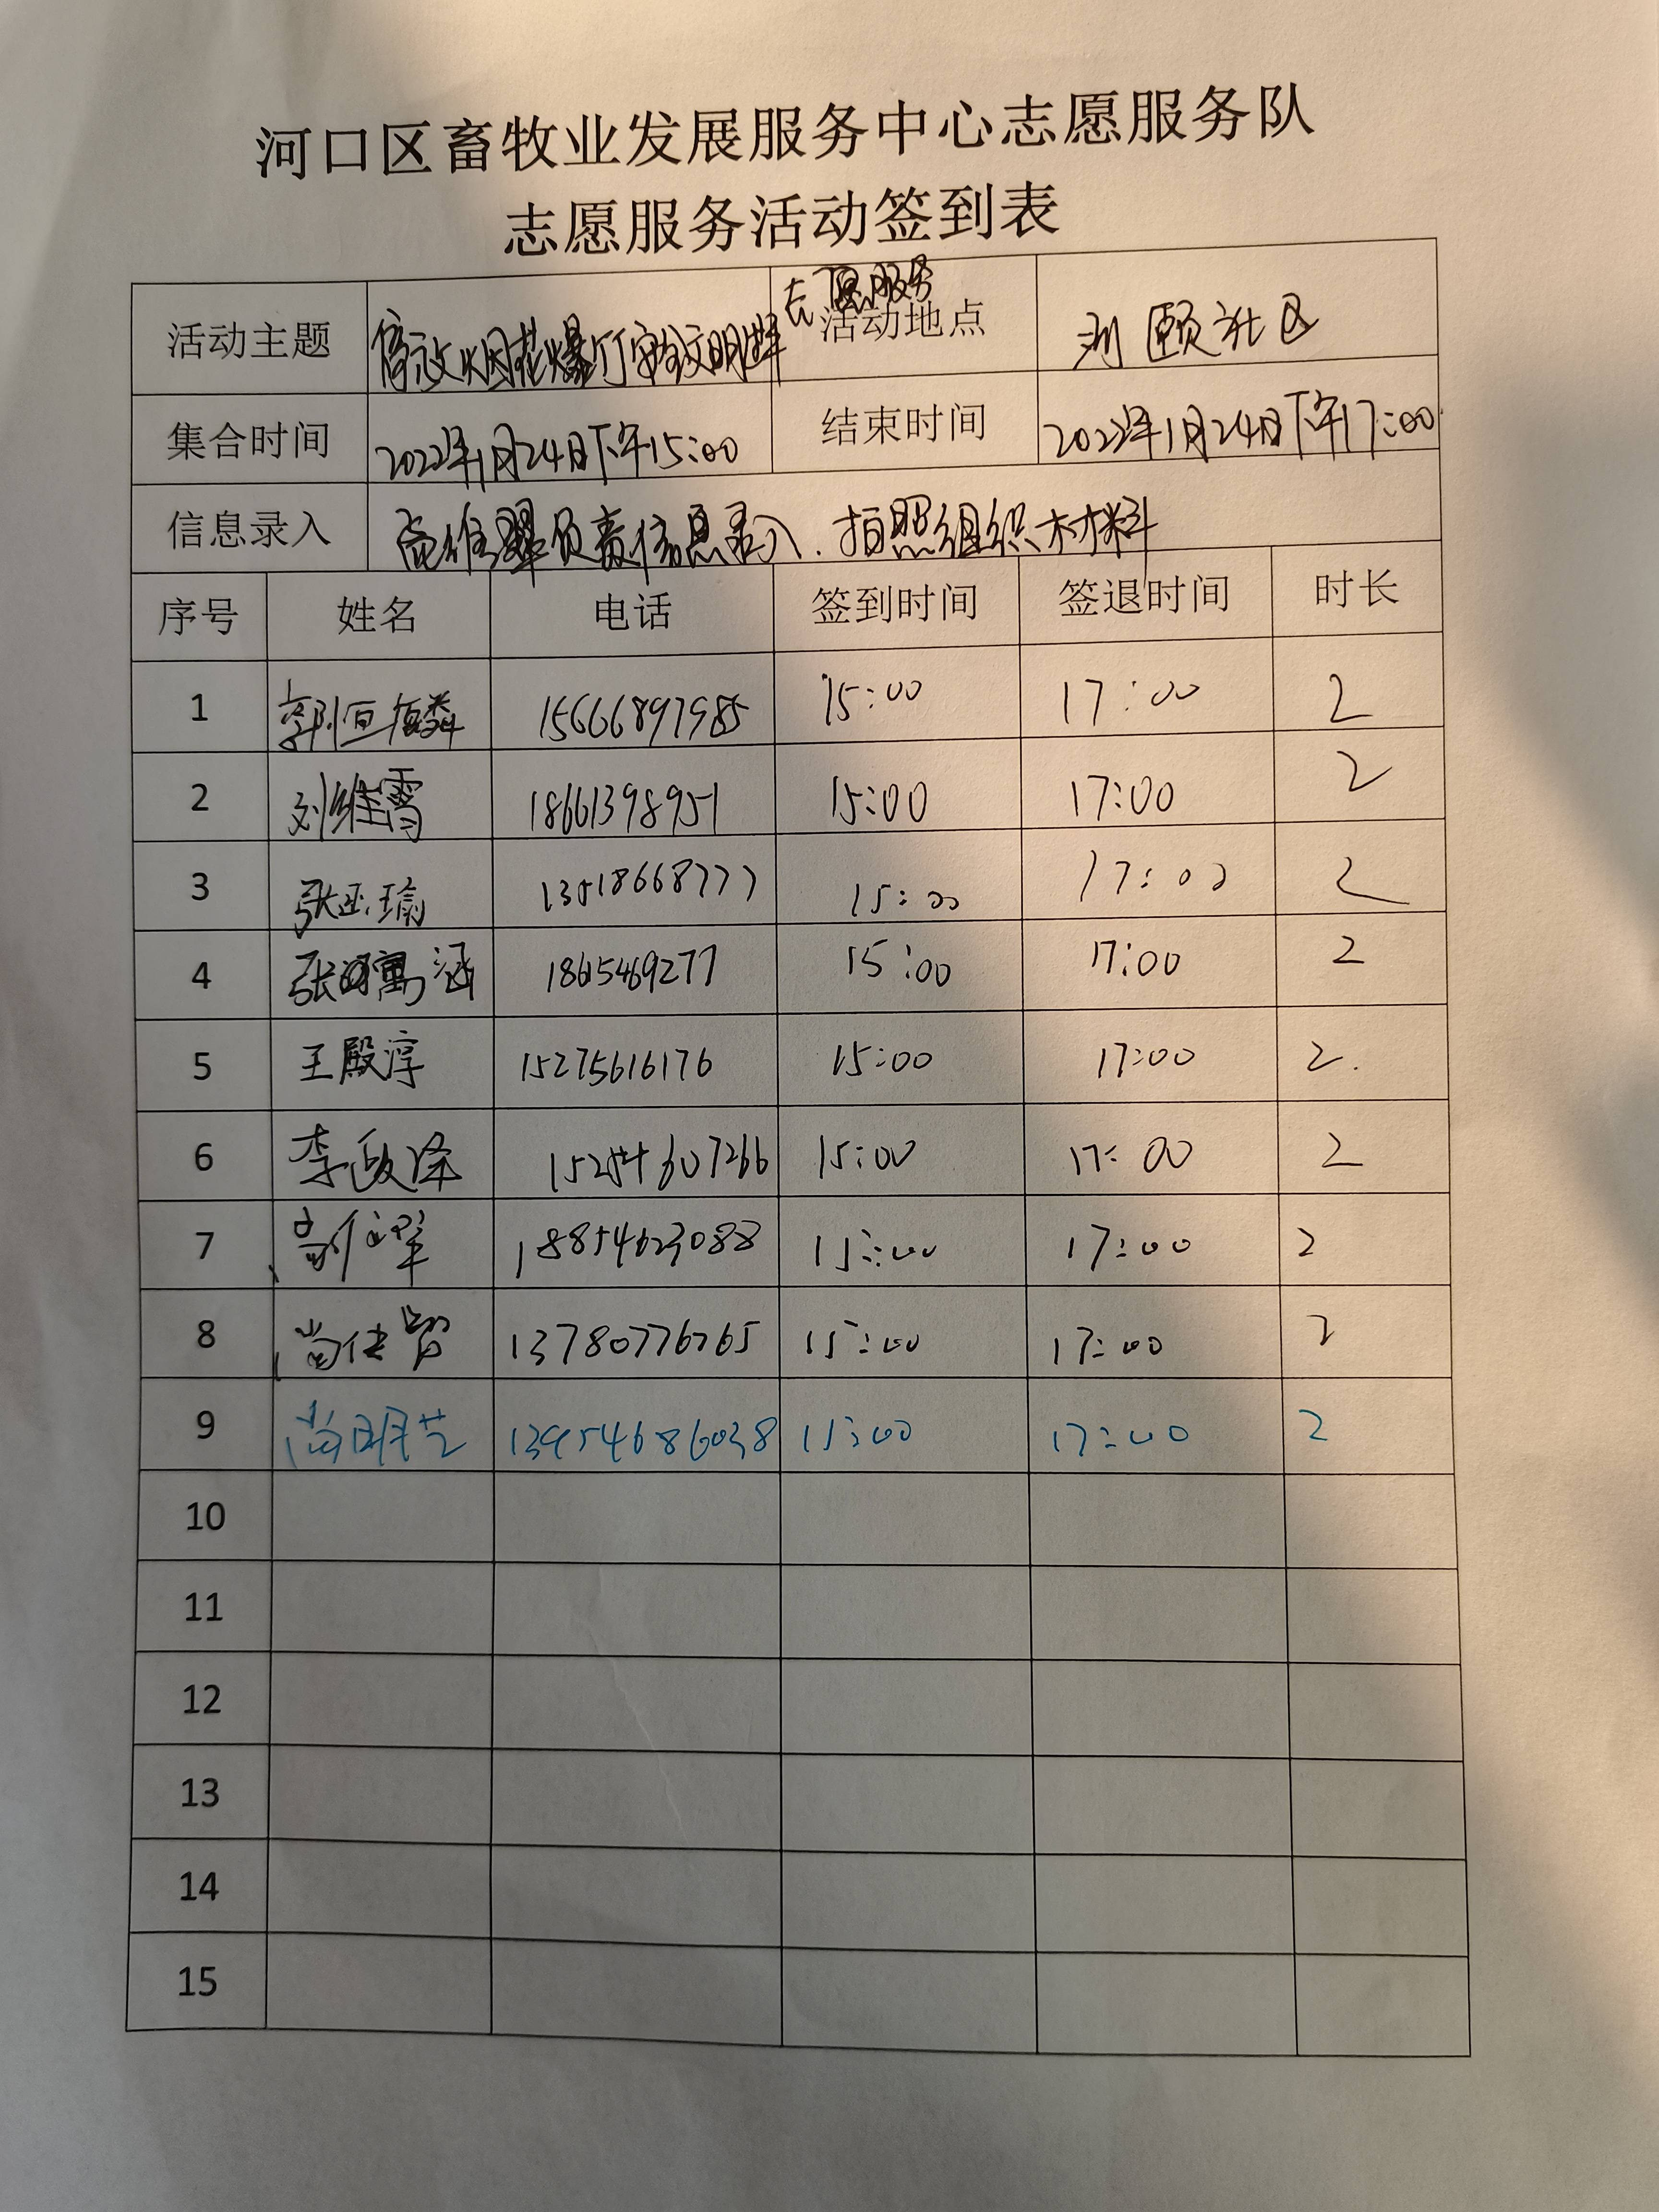 河口区畜牧业发展服务中心志愿服务队
志愿服务活动签到表
活动主题 烟花爆 文明 志愿服务 活动地点 社区
集合时间 2022年1月24日下午15:00 结束时间 2022年1月24日下午17:00
信息录入 负责信息录入.拍照组织材料
序号 姓名 电话 签到时间 签退时间 时长
1 15666897985 15:00 17:00 2
2 刘维霄 18661398951 15:00 17:00 2
3 15:00 17:00 2
4 15:00 17:00 2
5 王殿淳 15275616176 15:00 17:00 2.
6 李政泽 15:00 17:00 2
7 15:00 17:00 2
8 13780776765 15:00 17:00 2
9 尚明芝 13954686038 15:00 17:00 2
10
11
12
13
14
15